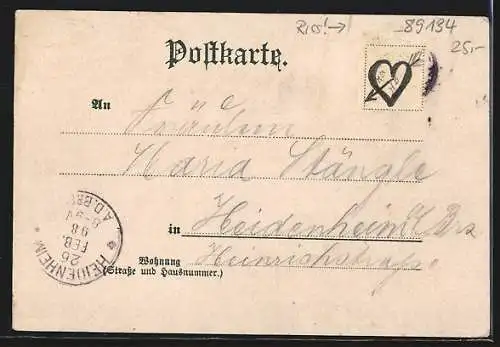 Riss! → 89134
25,-
Postkarte.
An Fräulein
Maria Stängle
in Heidenheim a/Brz
Heinrichstraße
Wohnung
(Straße und Hausnummer.)
HEIDENHEIM
A.D.BRZ
26
FEB.
98